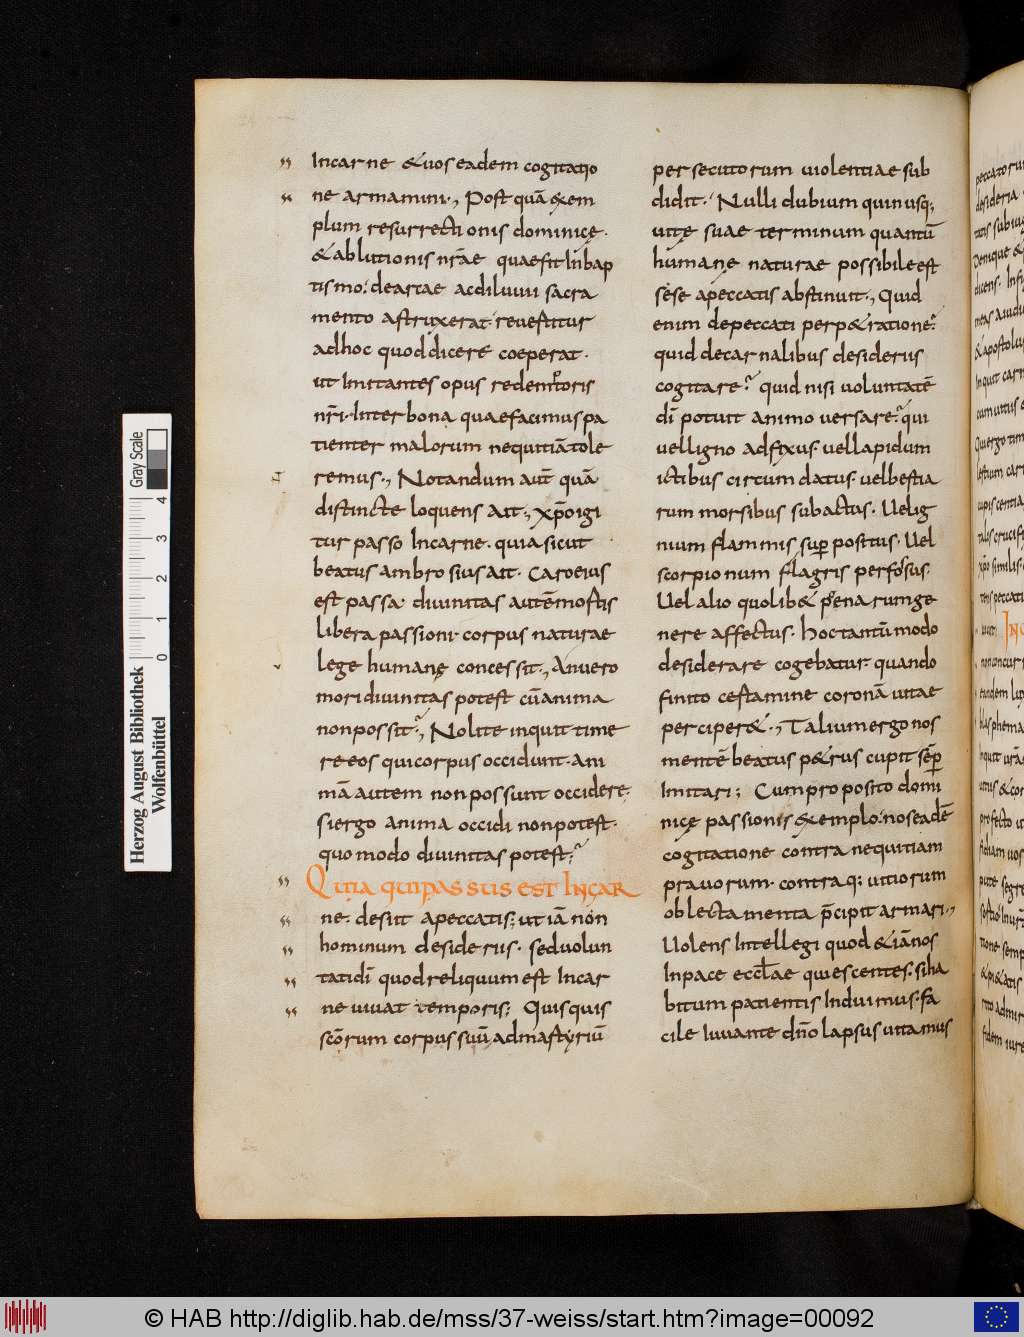 Incarne &uos eadem cogitatio
ne armamini., Post quā &xem
plum resurrectionis dominicę.
& ablutionis nr̄ae quae fit In bap
tismo. de arcae ac diluuii sacra
mento astruxerat. reuestitur
ad hoc quod dicere coeperat.
ut Imitantes opus redemptoris
nr̄i. Inter bona quae facimus pa
tienter malorum nequitiā tole
remus., Notandum aut̄ quā
distincte loquens ait., xp̄o igi
tur passo Incarne. quia sicut
beatus ambrosius ait. Caro eius
est passa. diuinitas autē mortis
libera passioni. corpus naturae
lege humanę concessit., An uero
mori diuinitas potest cū anima
non possit?, Nolite inquit time
re eos qui corpus occidunt. ani
mā autem non possunt occidere.
si ergo anima occidi non potest.
quomodo diuinitas potest?
Quia qui passus est Incar
ne. desiit a peccatis; ut iā non
hominum desideriis. sed uolun
tati dī quod reliquum est Incar
ne uiuat temporis; Quisquis
sc̄orum corpus suū ad martyriū
persecutorum uiolentiae sub
didit. Nulli dubium quin usq;
uitę suae terminum quantū
humanę naturae possibile est
sese a peccatis abstinuit., Quid
enim de peccati perp&ratione?
quid de carnalibus desideriis
cogitare? quid nisi uoluntatē
dī potuit animo uersare? qui
uel ligno adfixus. uel lapidum
ictibus circumdatus. uel bestia
rum morsibus subactus. Uel ig
nium flammis superpositus. Uel
scorpionum flagris perfosus.
Uel alio quolib& penarum ge
nere affectus. hoc tantū modo
desiderare cogebatur. quando
finito certamine coronā uitae
perciper&., Talium ergo nos
mentē beatus p&rus cupit semp
Imitari; Cum proposito domi
nicę passionis &xemplo. nos eadē
cogitatione contra nequitiam
prauorum. contraq; uitiorum
oblectamenta p̄cipit armari.,
Uolens Intellegi quod & iā nos
In pace eccl̄ae quiescentes. si ha
bitum patientis Induimus. fa
cile Iuuante dn̄o lapsus uitamus
Herzog August Bibliothek
Wolfenbüttel
0 1 2 3 4
Gray Scale
© HAB http://diglib.hab.de/mss/37-weiss/start.htm?image=00092